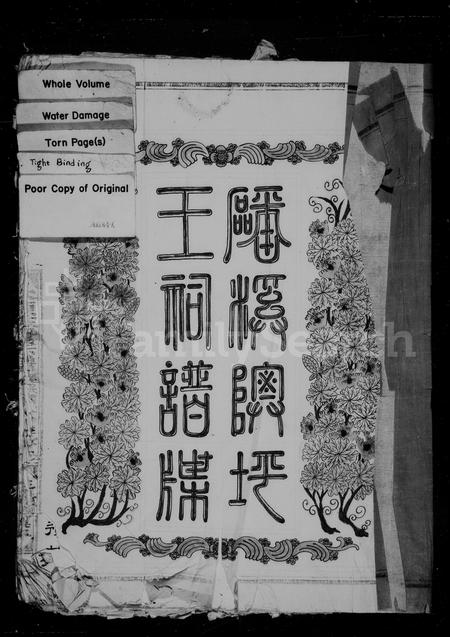 Whole Volume
Water Damage
Torn Page(s)
Tight Binding
Poor Copy of Original
磻溪隩坪
王祠譜牒
FamilySearch